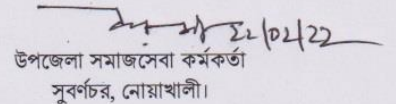 ২২/০২/২২
উপজেলা সমাজসেবা কর্মকর্তা
সুবর্ণচর, নোয়াখালী।